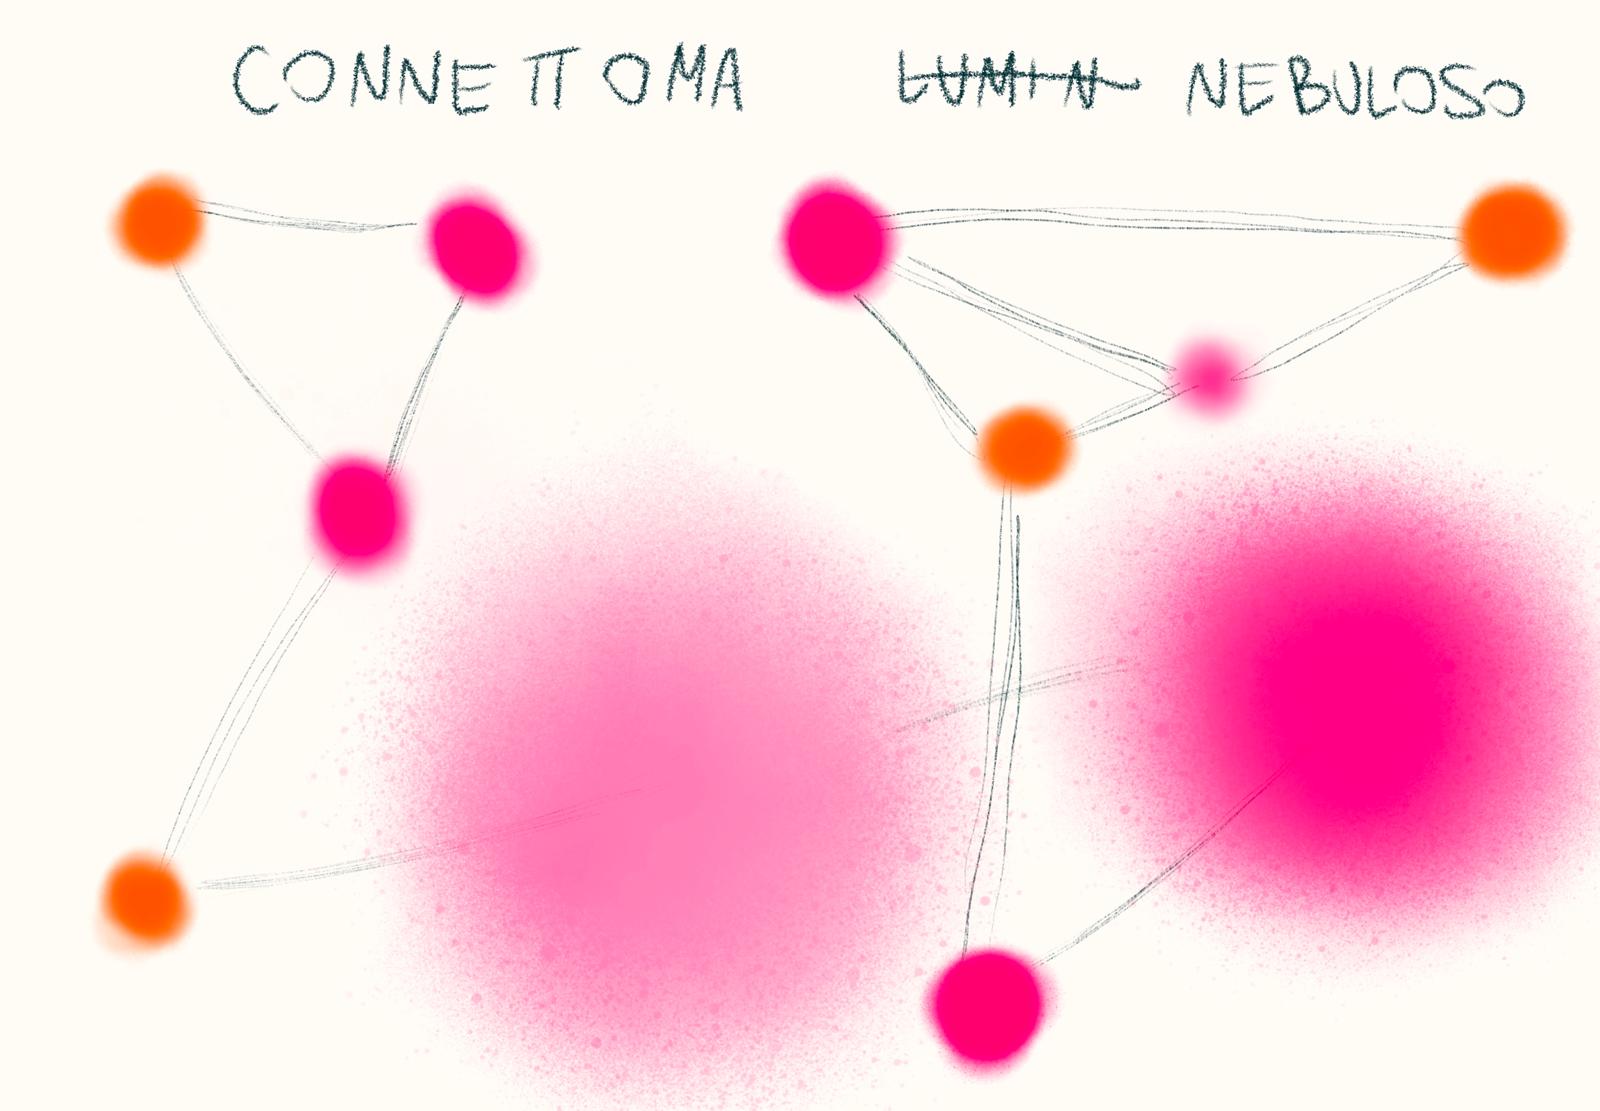 CONNETTOMA LUMIN NEBULOSO